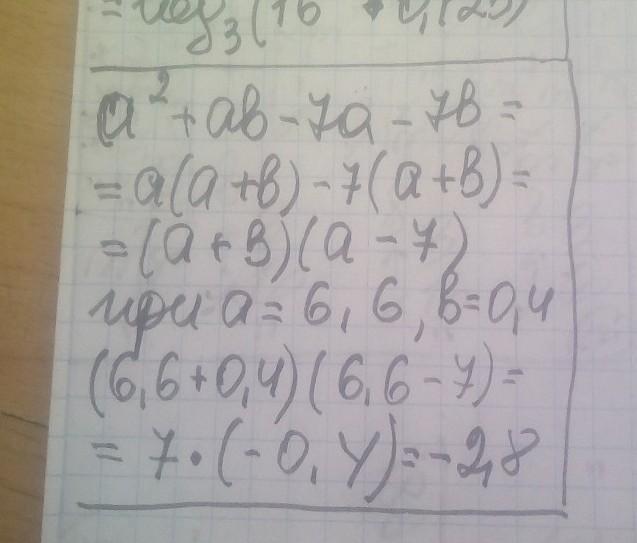 a² + ab - 7a - 7b =
= a(a + b) - 7(a + b) =
= (a + b)(a - 7)
при a = 6,6, b = 0,4
(6,6 + 0,4)(6,6 - 7) =
= 7 · (-0,4) = -2,8